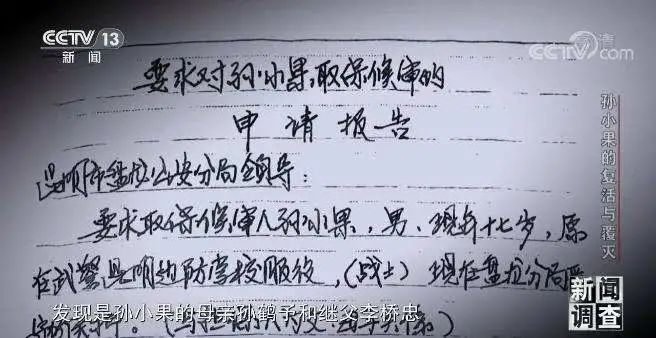 CCTV 13
新闻
CCTV.com
要求对孙小果取保候审的
申请报告
昆明市盘龙公安分局领导：
要求取保候审人孙小果，男、现年十七岁，原
在武警昆明边防学校服役，（战士）现在盘龙分局
发现是孙小果的母亲孙鹤予和继父李桥忠
孙小果的复活与覆灭
新闻
调查